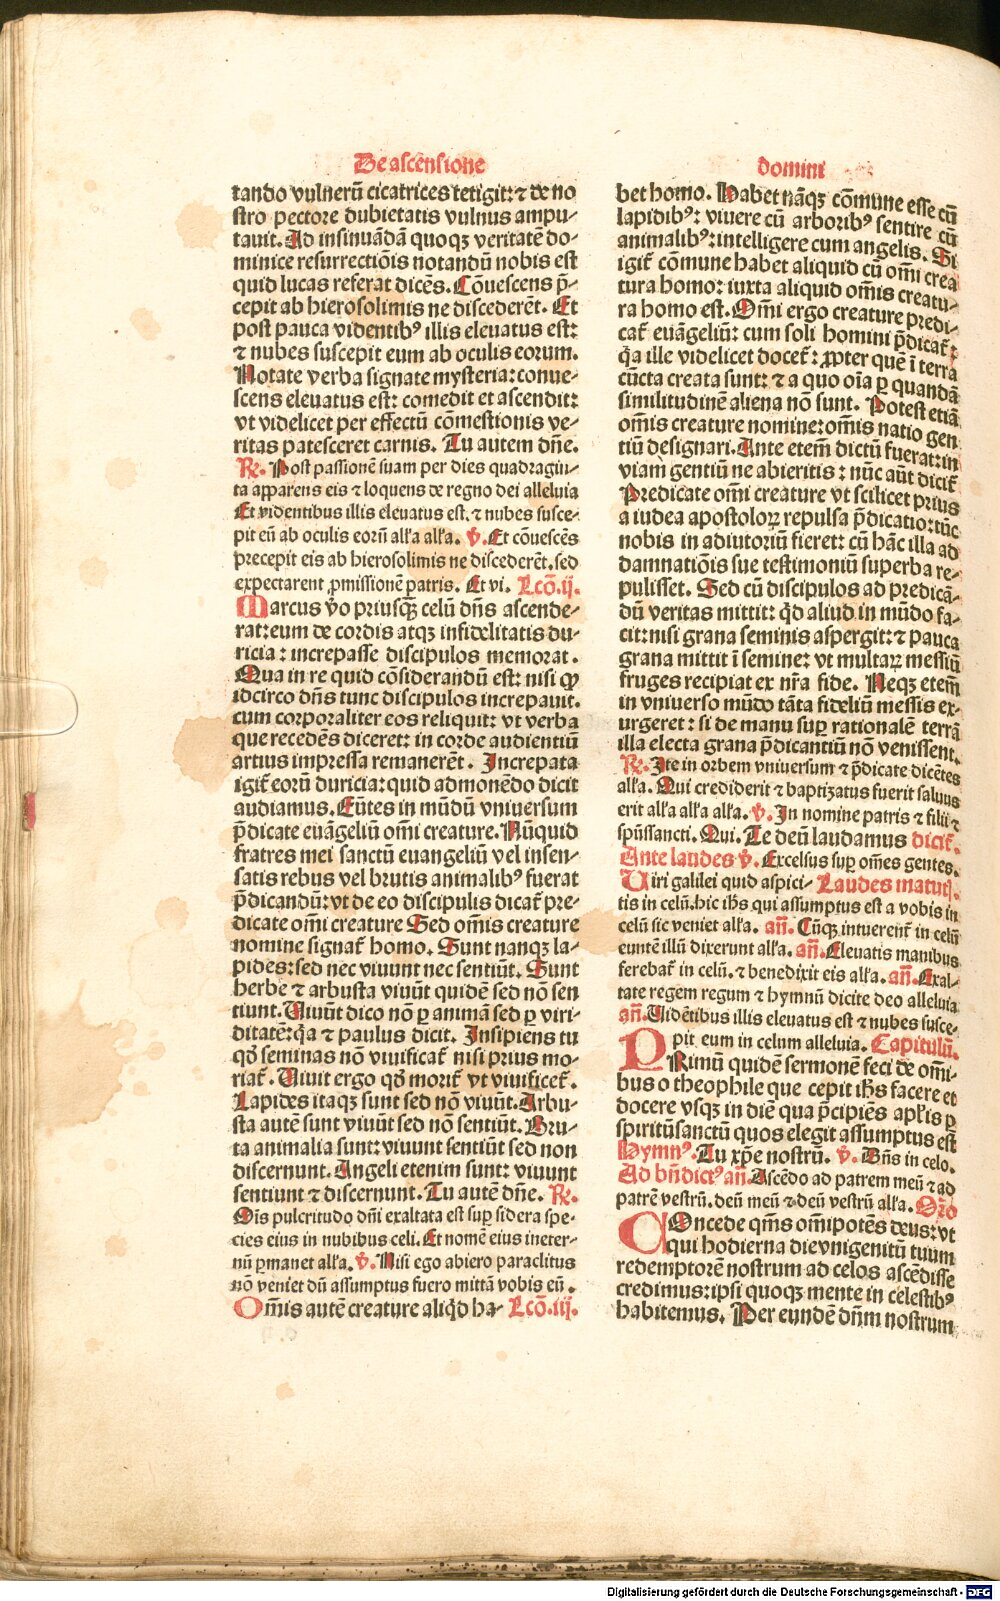 De ascēsione
tando vulnerū cicatrices tetigit: ⁊ de no
stro pectore dubietatis vulnus ampu⸗
tauit. Ad insinuādā quoqꝫ veritatē do⸗
minice resurrectiōis notandū nobis est
quid lucas referat dicēs. Cōuescens p̄⸗
cepit ab hierosolimis ne discederēt. Et
post pauca videntibꝰ illis eleuatus est:
⁊ nubes suscepit eum ab oculis eorum.
Notate verba signate mysteria: conue⸗
scens eleuatus est: comedit et ascendit:
vt videlicet per effectū cōmestionis ve⸗
ritas patesceret carnis. Tu autem dn̄e.
R̃. Post passionē suam per dies quadragin⸗
ta apparens eis ⁊ loquens de regno dei alleluia
Et videntibus illis eleuatus est. ⁊ nubes susce⸗
pit eū ab oculis eorū all'a all'a. v̄. Et cōuescēs
precepit eis ab hierosolimis ne discederēt. sed
expectarent ꝓmissionē patris. Et vi. Lcō.ij.
Marcus ṽo priusqꝫ celū dn̄s ascende⸗
rat: eum de cordis atqꝫ infidelitatis du⸗
ricia: increpasse discipulos memorat.
Qua in re quid cōsiderandū est: nisi ꝙ
idcirco dn̄s tunc discipulos increpauit.
cum corporaliter eos reliquit: vt verba
que recedēs diceret: in corde audientiū
artius impressa remanerēt. Increpata
igit̄ eorū duricia: quid admonēdo dicit
audiamus. Eūtes in mūdū vniuersum
p̄dicate euāgeliū om̄i creature. Nūquid
fratres mei sanctū euangeliū vel insen⸗
satis rebus vel brutis animalibꝰ fuerat
p̄dicandū: vt de eo discipulis dicat̄ pre⸗
dicate om̄i creature Sed om̄is creature
nomine signat̄ homo. Sunt nanqꝫ la⸗
pides: sed nec viuunt nec sentiūt. Sunt
herbe ⁊ arbusta viuūt quidē sed nō sen
tiunt. Viuūt dico nō ꝑ animā sed ꝑ viri⸗
ditatē: q̄a ⁊ paulus dicit. Insipiens tu
qđ seminas nō viuificat̄ nisi prius mo⸗
riat̄. Viuit ergo qđ morit̄ vt viuificet̄.
Lapides itaqꝫ sunt sed nō viuūt. Arbu⸗
sta autē sunt viuūt sed nō sentiūt. Bru⸗
ta animalia sunt: viuunt sentiūt sed non
discernunt. Angeli etenim sunt: viuunt
sentiunt ⁊ discernunt. Tu autē dn̄e. R̃.
Om̄is pulcritudo dn̄i exaltata est suꝑ sidera spe⸗
cies eius in nubibus celi. Et nomē eius ineter⸗
nū ꝑmanet all'a. v̄. Nisi ego abiero paraclitus
nō veniet dū assumptus fuero mittā vobis eū.
Om̄is autē creature aliq̇d ha⸗ Lcō.iij.
domini
bet homo. Habet nāqꝫ cōmune esse cū
lapidibꝰ: viuere cū arboribꝰ sentire cū
animalibꝰ: intelligere cum angelis. Si
igit̄ cōmune habet aliquid cū om̄i crea
tura homo: iuxta aliquid om̄is creatu⸗
ra homo est. Om̄i ergo creature predi⸗
cat̄ euāgeliū: cum soli homini p̄dicat̄:
q̄a ille videlicet docet̄: ꝓpter quē ī terra
cūcta creata sunt: ⁊ a quo oīa ꝑ quandā
similitudinē aliena nō sunt. Potest etiā
om̄is creature nomine: om̄is natio gen
tiū designari. Ante etem̄ dictū fuerat: in
viam gentiū ne abieritis: nūc aūt dicit̄
Predicate om̄i creature vt scilicet prius
a iudea apostoloꝝ repulsa p̄dicatio: tūc
nobis in adiutoriū fieret: cū hāc illa ad
damnatiōis sue testimoniū superba re⸗
pulisset. Sed cū discipulos ad predicā⸗
dū veritas mittit: q̇d aliud in mūdo fa⸗
cit: nisi grana seminis aspergit: ⁊ pauca
grana mittit ī semine: vt multaꝝ messiū
fruges recipiat ex nr̄a fide. Neqꝫ etem̄
in vniuerso mūdo tāta fideliū messis ex⸗
urgeret: si de manu suꝑ rationalē terrā
illa electa grana p̄dicantiū nō venissent.
R̃. Ite in orbem vniuersum ⁊ p̄dicate dicētes
all'a. Qui crediderit ⁊ baptizatus fuerit saluus
erit all'a all'a all'a. v̄. In nomine patris ⁊ filii ⁊
spūssancti. Qui. Te deū laudamus dicit̄.
Ante laudes v̄. Excelsus suꝑ om̄es gentes.
Viri galilei quid aspici⸗ Laudes matuṭị.
tis in celū. hic ih̄s qui assumptus est a vobis in
celū sic veniet all'a. an̄. Cūqꝫ intuerent̄ in celū
euntē illū dixerunt all'a. an̄. Eleuatis manibus
ferebat̄ in celū. ⁊ benedixit eis all'a. an̄. Exal⸗
tate regem regum ⁊ hymnū dicite deo alleluia
an̄. Vidētibus illis eleuatus est ⁊ nubes susce⸗
pit eum in celum alleluia. Capitulū.
PRimū quidē sermonē feci de om̄i⸗
bus o theophile que cepit ih̄s facere et
docere vsqꝫ in diē qua p̄cipiēs apl'is ꝑ
spiritūsanctū quos elegit assumptus est
Hymnꝰ. Tu xp̄e nostrū. v̄. Dn̄s in celo.
Ad bn̄dictꝰ an̄. Ascēdo ad patrem meū ⁊ ad
patrē vestrū. deū meū ⁊ deū vestrū all'a. Or̄o
COncede qm̄s om̄ipotēs deus: vt
qui hodierna die vnigenitū tuum
redemptorē nostrum ad celos ascēdisse
credimus: ipsi quoqꝫ mente in celestibꝰ
habitemus. Per eundē dn̄m nostrum
Digitalisierung gefördert durch die Deutsche Forschungsgemeinschaft - DFG